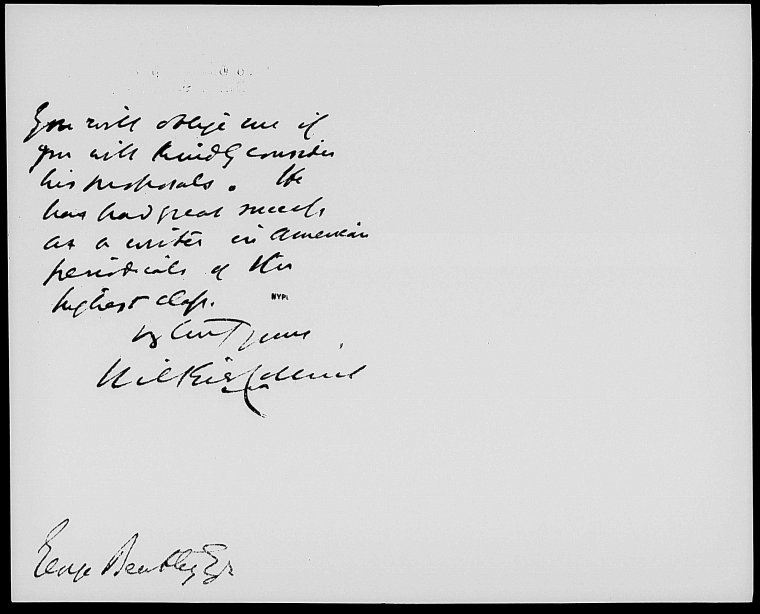 You will oblige me if
you will kindly consider
his proposals. He
has had great success
as a writer in American
periodicals of the
highest class.
NYPL
yours
Wilkie Collins
George Bentley Esqr